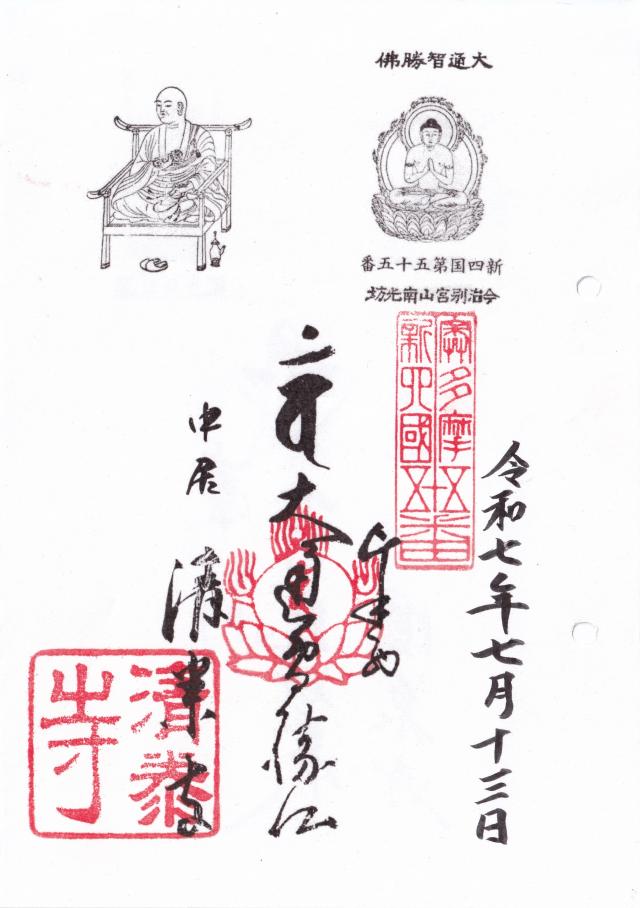 大通智勝佛
新四国第五十五番
今治別宮山南光坊
奉多摩五十五番
新四國
令和七年七月十三日
大通智勝仏
中居
清泰寺
清泰
之寺